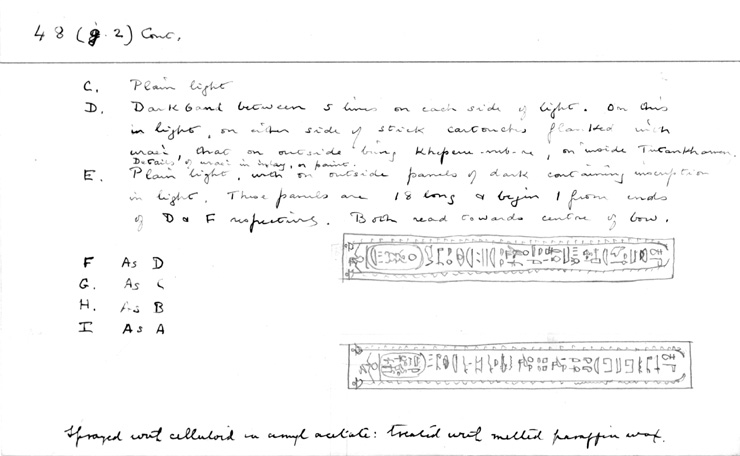 48 (g.2) Cont.
C. Plain light
D. Dark band between 5 lines on each side of light. On this
in light, on either side of stick cartouches flanked with
uraei, that on outside being Kheperu-neb-re, on inside Tutankhamon.
Details of uraei in inlay, or paint.
E. Plain light, with on outside panels of dark containing inscription
in light. These panels are 18 long & begin 1 from ends
of D & F respectively. Both read towards centre of bow.
F As D
G. As C
H. As B
I As A
Sprayed with celluloid in amyl acetate: treated with melted paraffin wax.